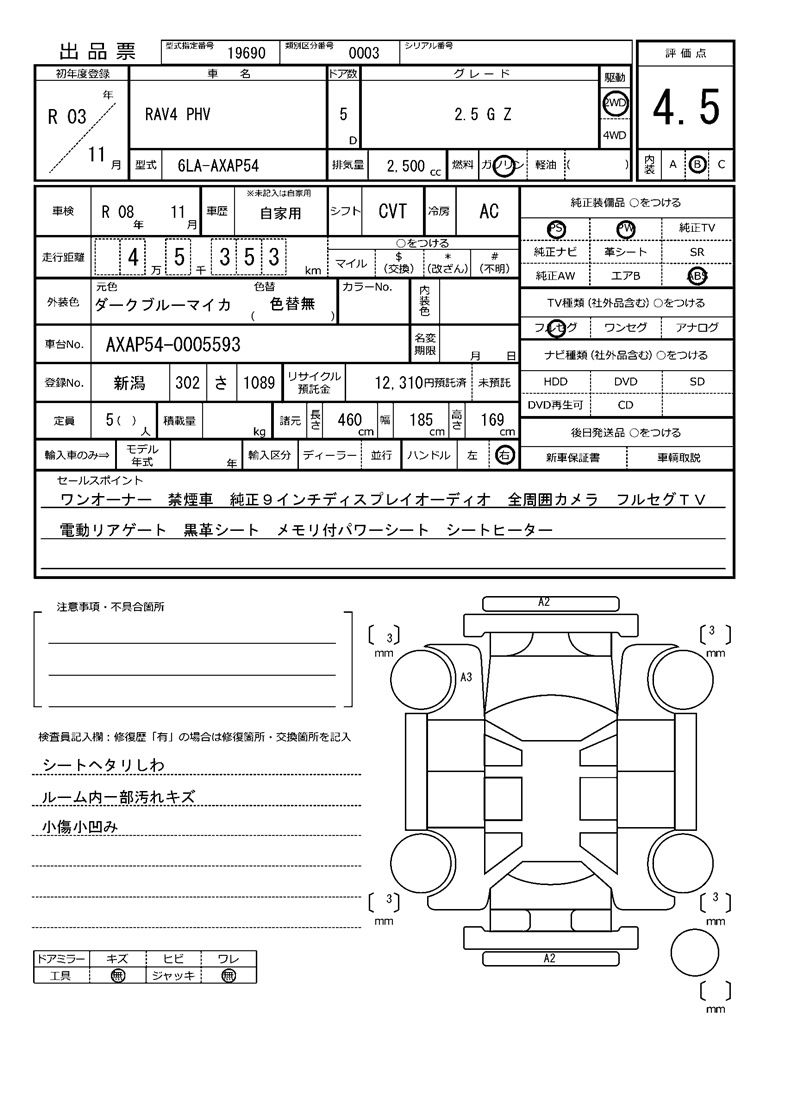 出品票 型式指定番号 19690 類別区分番号 0003 シリアル番号
評価点
4.5
内装 A B C
初年度登録 車名 ドア数 グレード 駆動
R 03 年 11 月 RAV4 PHV 5 D 2.5 G Z 2WD
4WD
型式 6LA-AXAP54 排気量 2,500 cc 燃料 ガソリン 軽油 ( )
車検 R 08 年 11 月 車歴 ※未記入は自家用 自家用 シフト CVT 冷房 AC
走行距離 4 万 5 千 3 5 3 km
○をつける
マイル $ (交換) * (改ざん) # (不明)
外装色 元色 ダークブルーマイカ 色替 色替無 ( ) カラーNo. 内装色
車台No. AXAP54-0005593 名変期限 月 日
登録No. 新潟 302 さ 1089 リサイクル預託金 12,310円預託済 未預託
定員 5( ) 人 積載量 kg 諸元 長さ 460 cm 幅 185 cm 高さ 169 cm
輸入車のみ⇒ モデル年式 年 輸入区分 ディーラー 並行 ハンドル 左 右
純正装備品 ○をつける
PS PW 純正TV
純正ナビ 革シート SR
純正AW エアB ABS
TV種類(社外品含む)○をつける
フルセグ ワンセグ アナログ
ナビ種類(社外品含む)○をつける
HDD DVD SD
DVD再生可 CD
後日発送品 ○をつける
新車保証書 車輌取説
セールスポイント
ワンオーナー 禁煙車 純正9インチディスプレイオーディオ 全周囲カメラ フルセグTV
電動リアゲート 黒革シート メモリ付パワーシート シートヒーター
注意事項・不具合箇所
検査員記入欄:修復歴「有」の場合は修復箇所・交換箇所を記入
シートヘタリしわ
ルーム内一部汚れキズ
小傷小凹み
ドアミラー キズ ヒビ ワレ
工具 無 ジャッキ 無
A2
〔 3 〕 mm
〔 3 〕 mm
A3
〔 3 〕 mm
〔 3 〕 mm
A2
〔 〕 mm